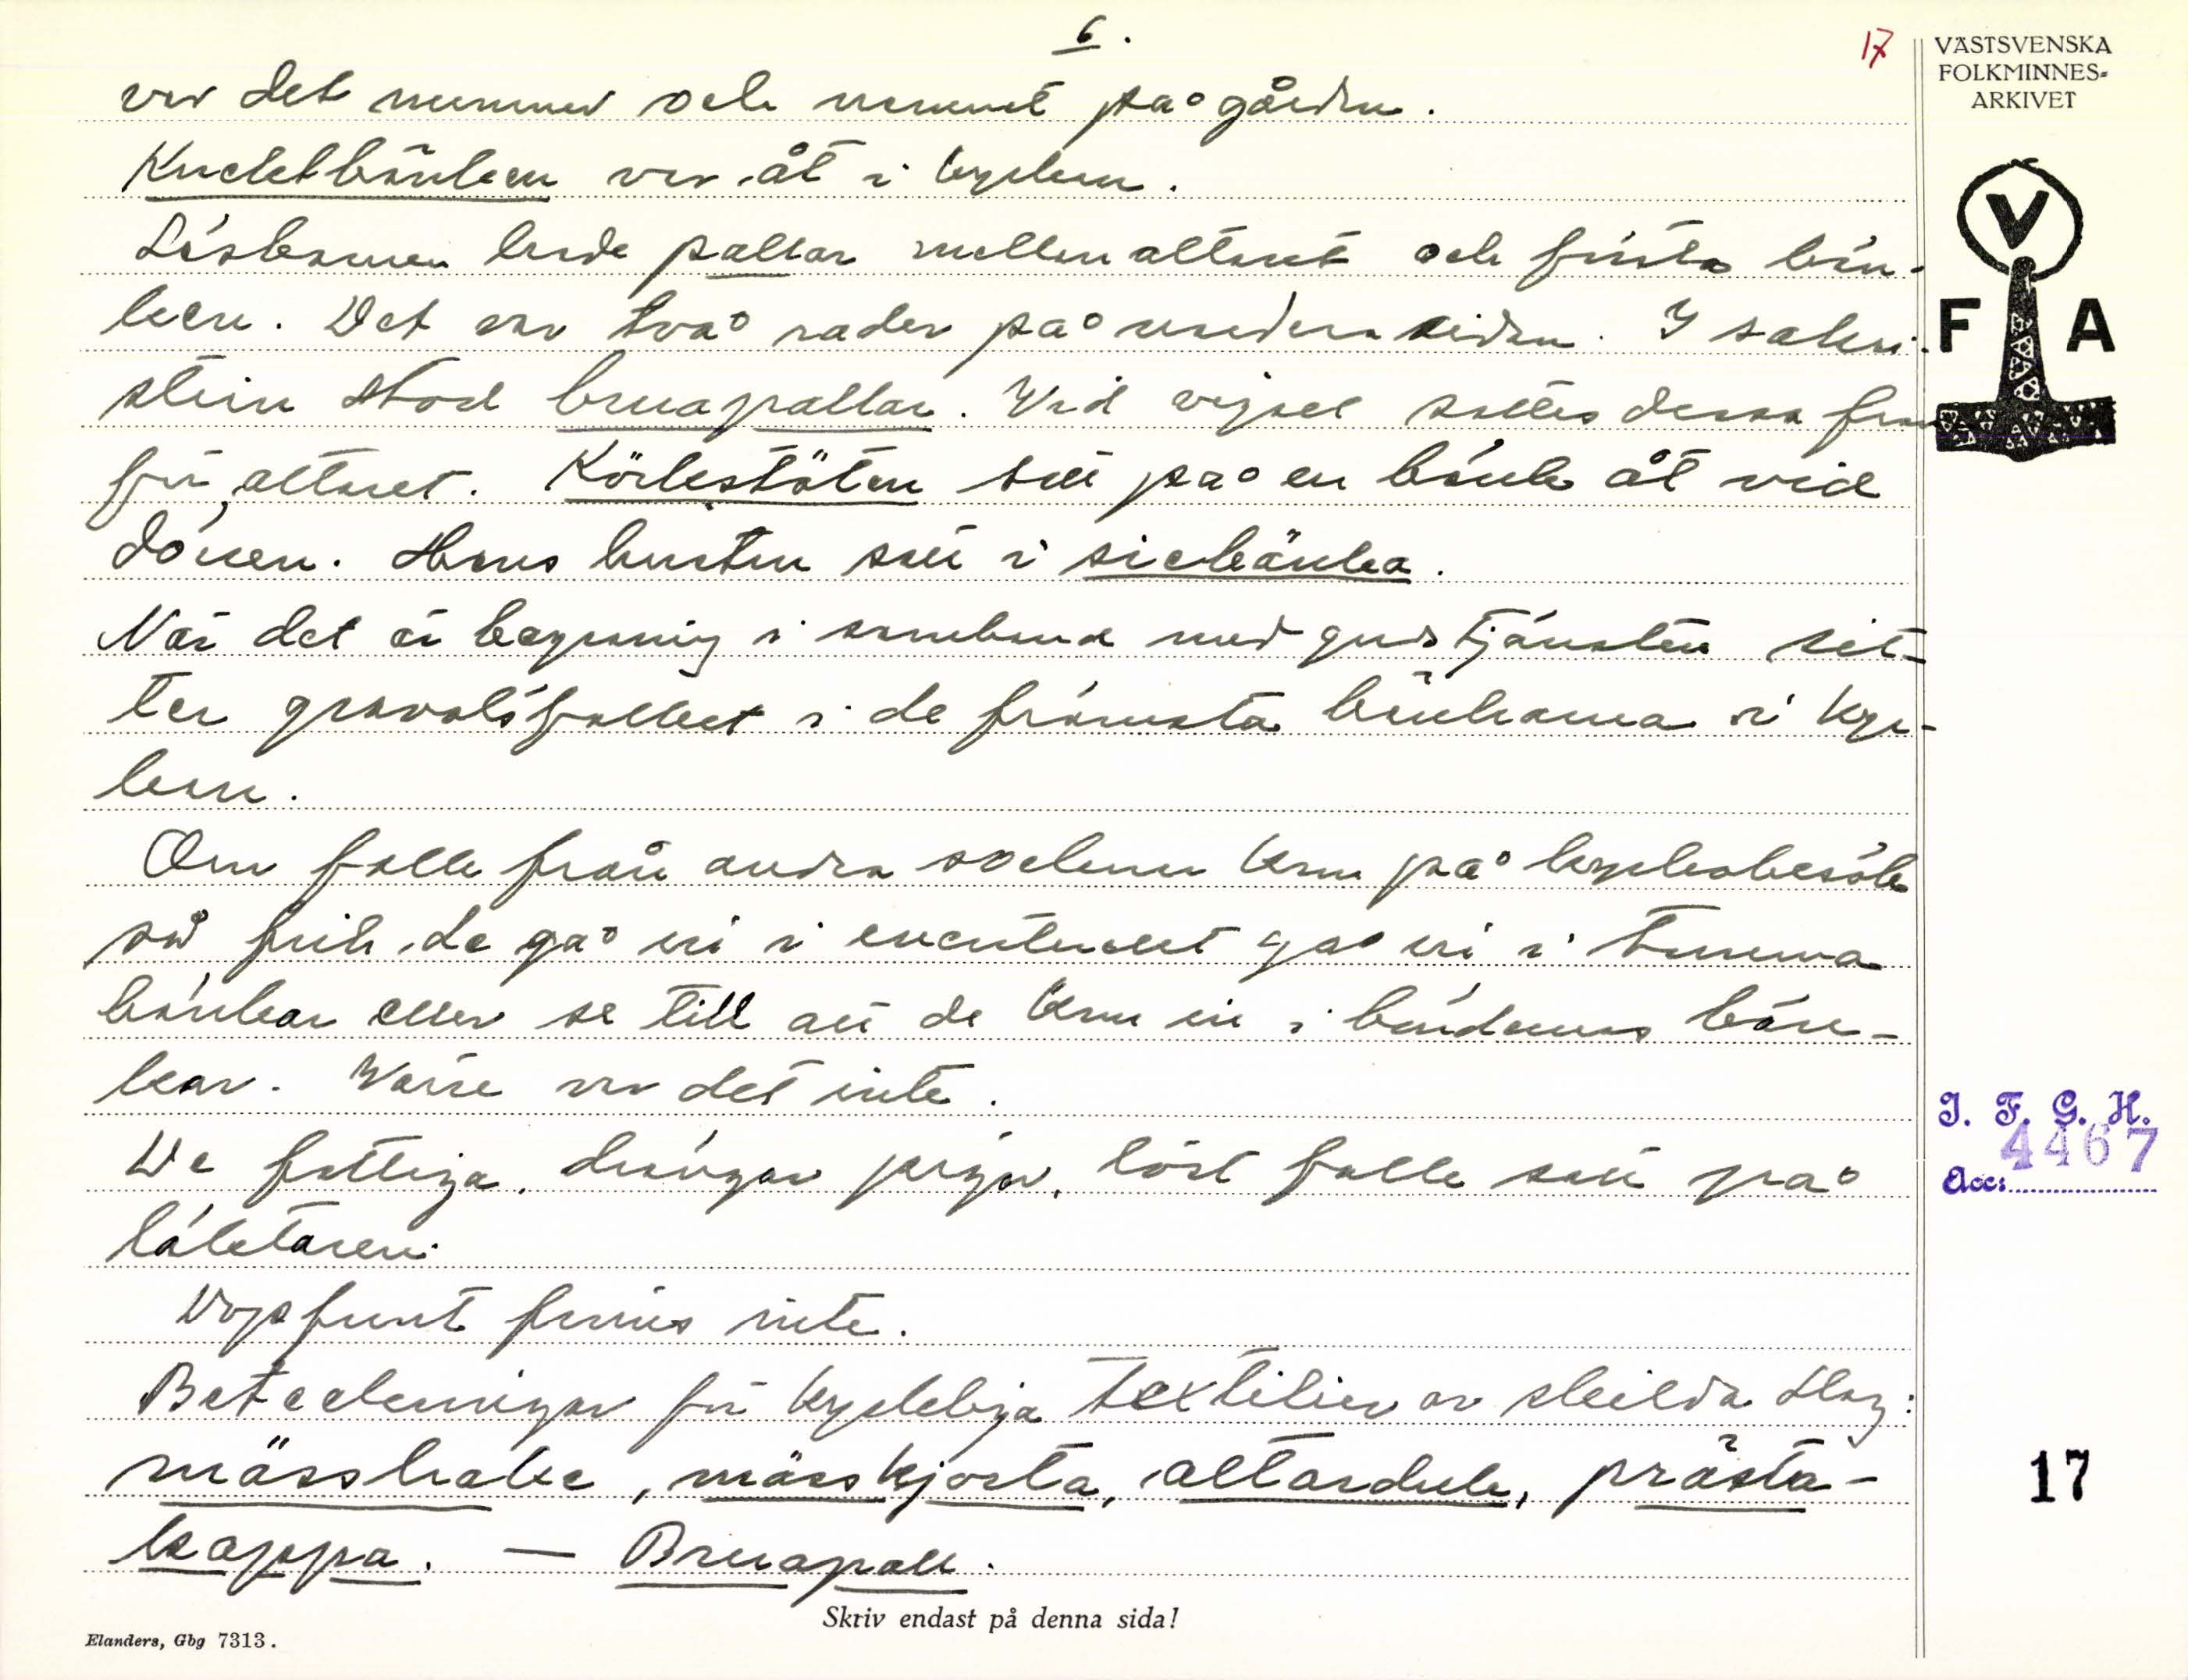 6.
17
VÄSTSVENSKA
FOLKMINNES-
ARKIVET
var det nummer och namnet på gården.
Knektbänken var åt i kyrkan.
Läsbarnen hade pallar mellan altaret och första bän-
ken. Det var två rader på sidan. I sakri-
stian stod bruapallar. Vid vigsel sattes dessa fram
för altaret. Körkestöten satt på en bänk åt vid
dörren. Hans hustru satt i sicbänka.
När det är begravning i samband med gudstjänsten sit-
ter gravölsfolket i de främsta bänkarna i kyr-
kan.
Om folk från andra socknar kom på kyrkobesök
så fick de gå in i eventuellt gå in i tomma
bänkar eller se till att de kom in i böndernas bän-
kar. Värre var det inte.
De fattiga, drängar pigor, löst folk satt på
läktaren.
Dopfunt finns inte.
Beteckningar för kyrkliga textilier av skilda slag:
mässhake, mässkjorta, altarduk, prästa-
kappa. — Bruapall.
V
F A
I. F. G. H.
4467
Acc:
17
Skriv endast på denna sida!
Elanders, Gbg 7313.